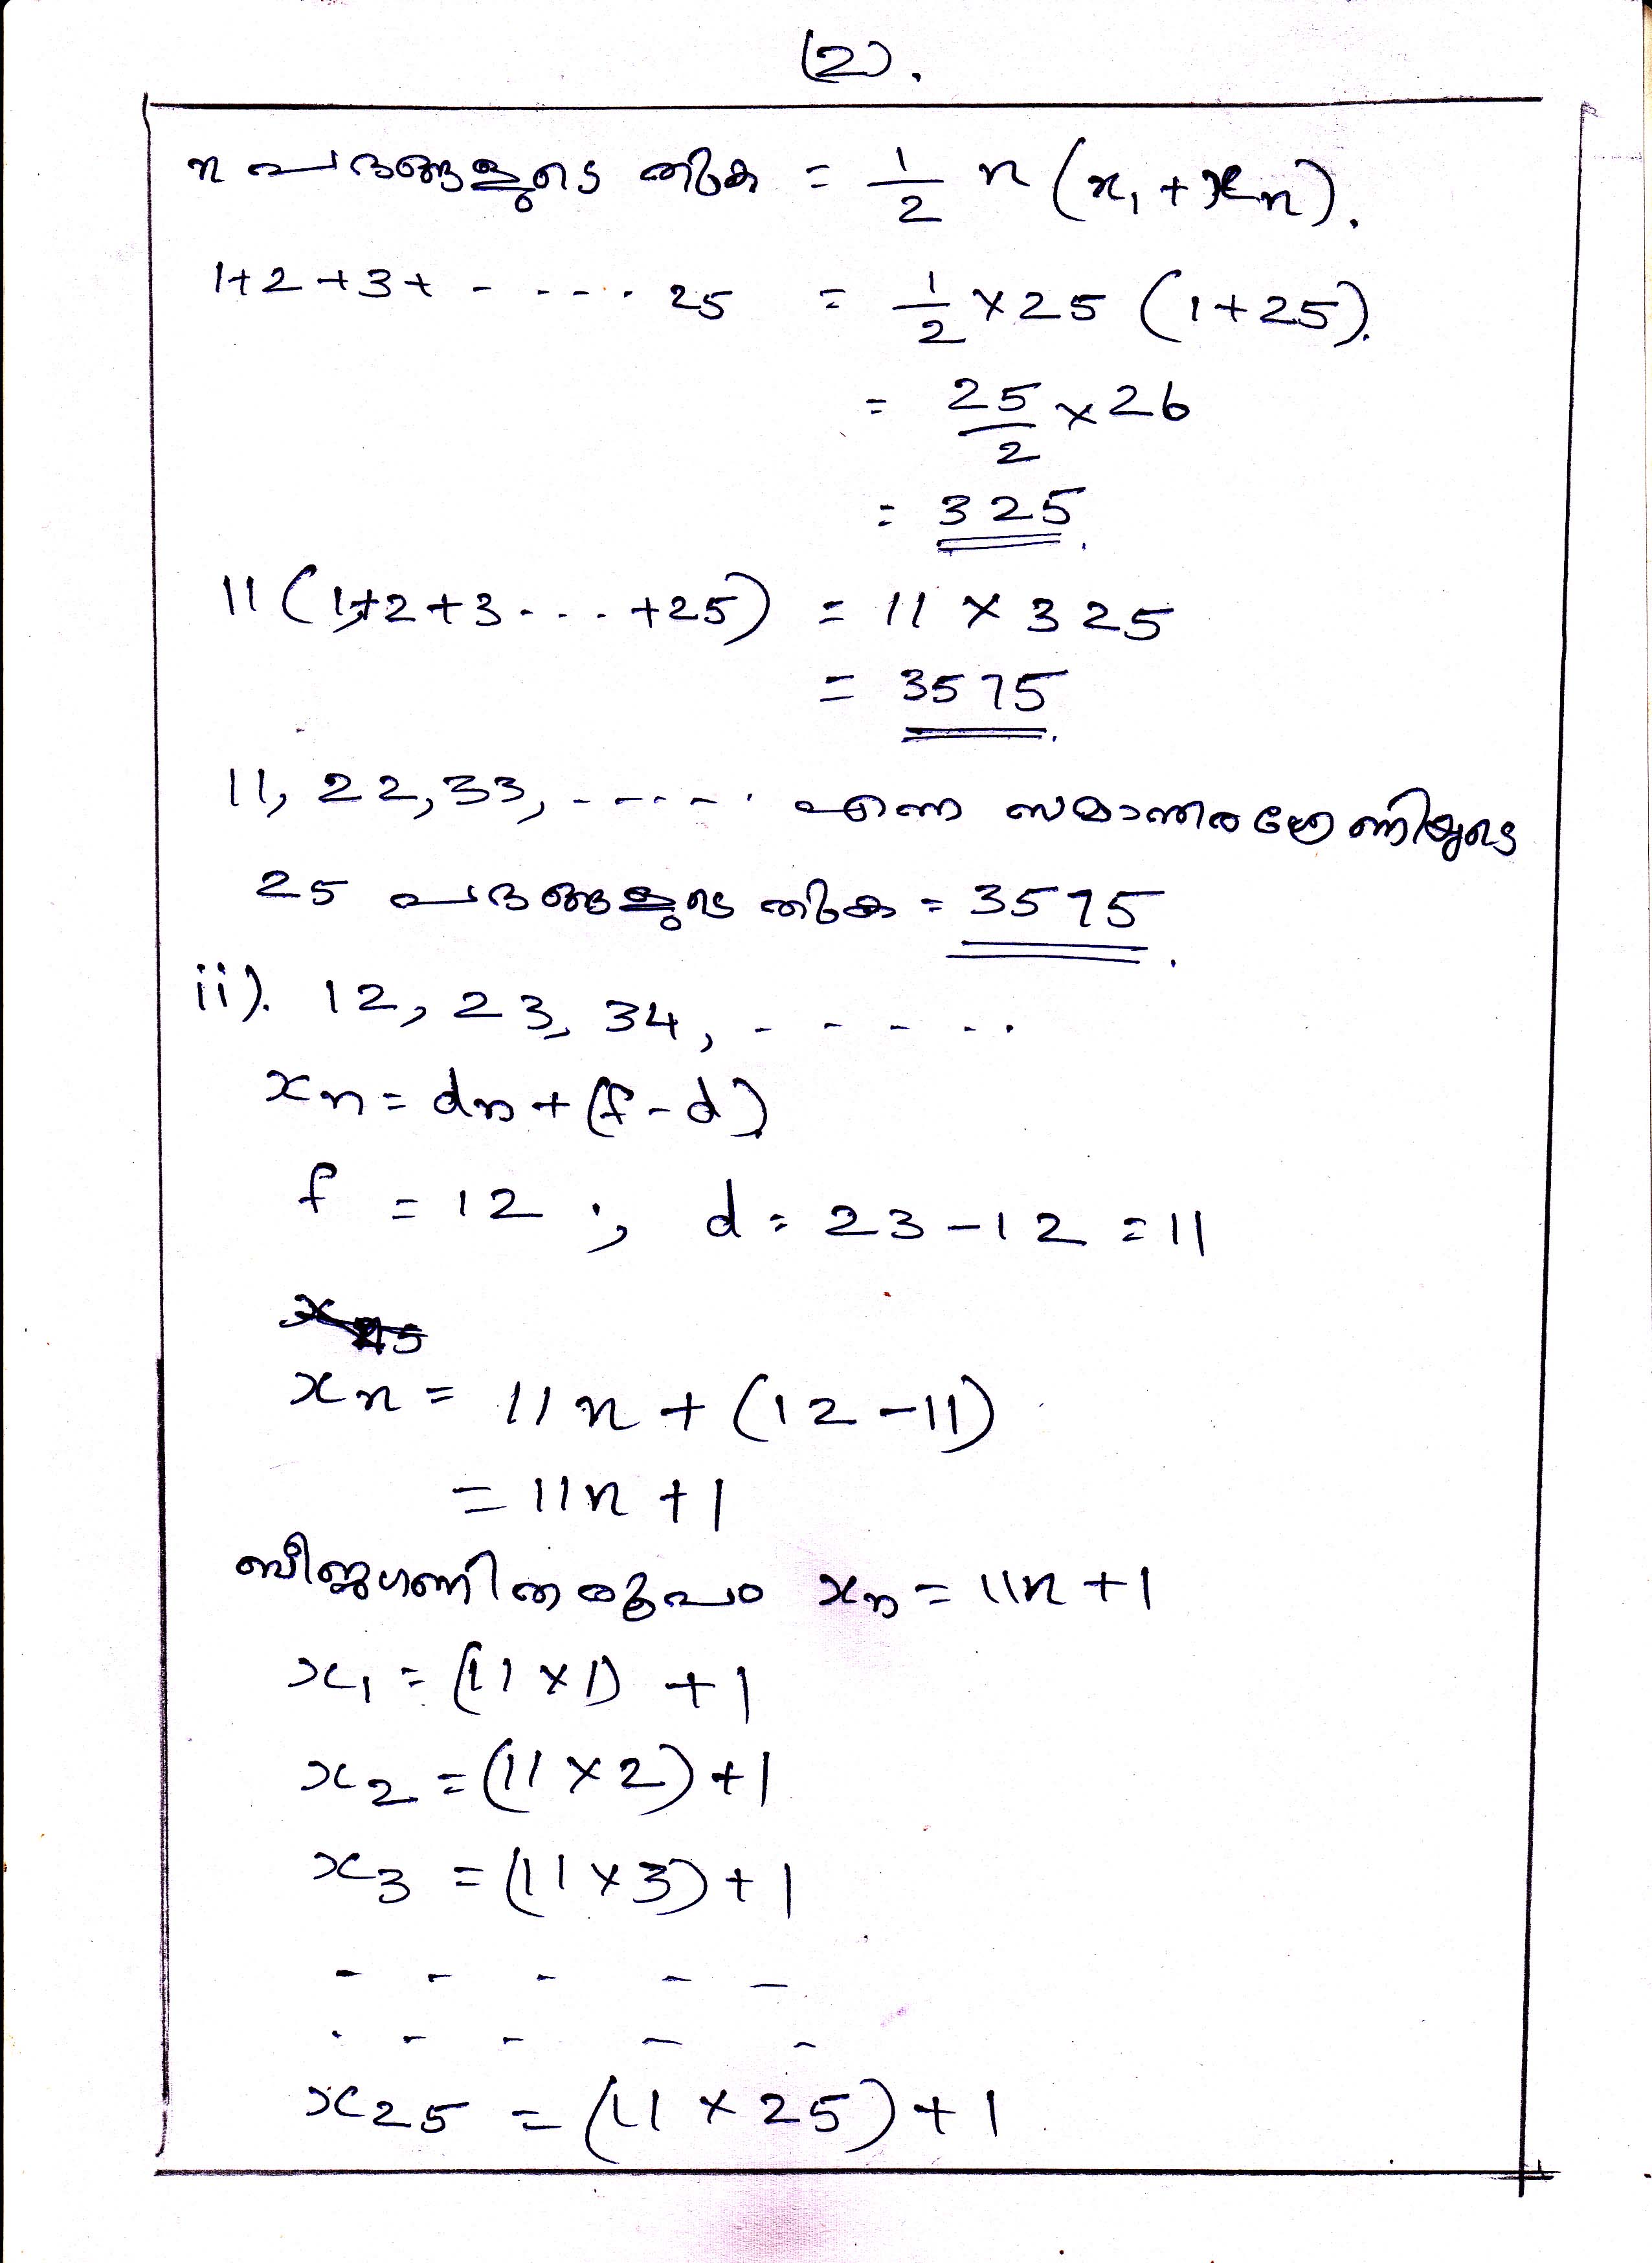 (2).
n പദങ്ങളുടെ തുക = 1/2 n (x₁ + xₙ).
1+2+3+ - - - - . 25 = 1/2 × 25 (1+25).
= 25/2 × 26
= 325.
11 (1+2+3 - . . . +25) = 11 × 325
= 3575.
11, 22, 33, - - - - - . എന്ന സമാന്തര ശ്രേണിയുടെ
25 പദങ്ങളുടെ തുക = 3575.
ii). 12, 23, 34, - - - - - .
xₙ = dn + (f - d)
f = 12 ; d = 23 - 12 = 11
xₙ = 11n + (12 - 11)
= 11n + 1
ബീജഗണിത രൂപം xₙ = 11n + 1
x₁ = (11 × 1) + 1
x₂ = (11 × 2) + 1
x₃ = (11 × 3) + 1
- - - - -
. - - - -
x₂₅ = (11 × 25) + 1